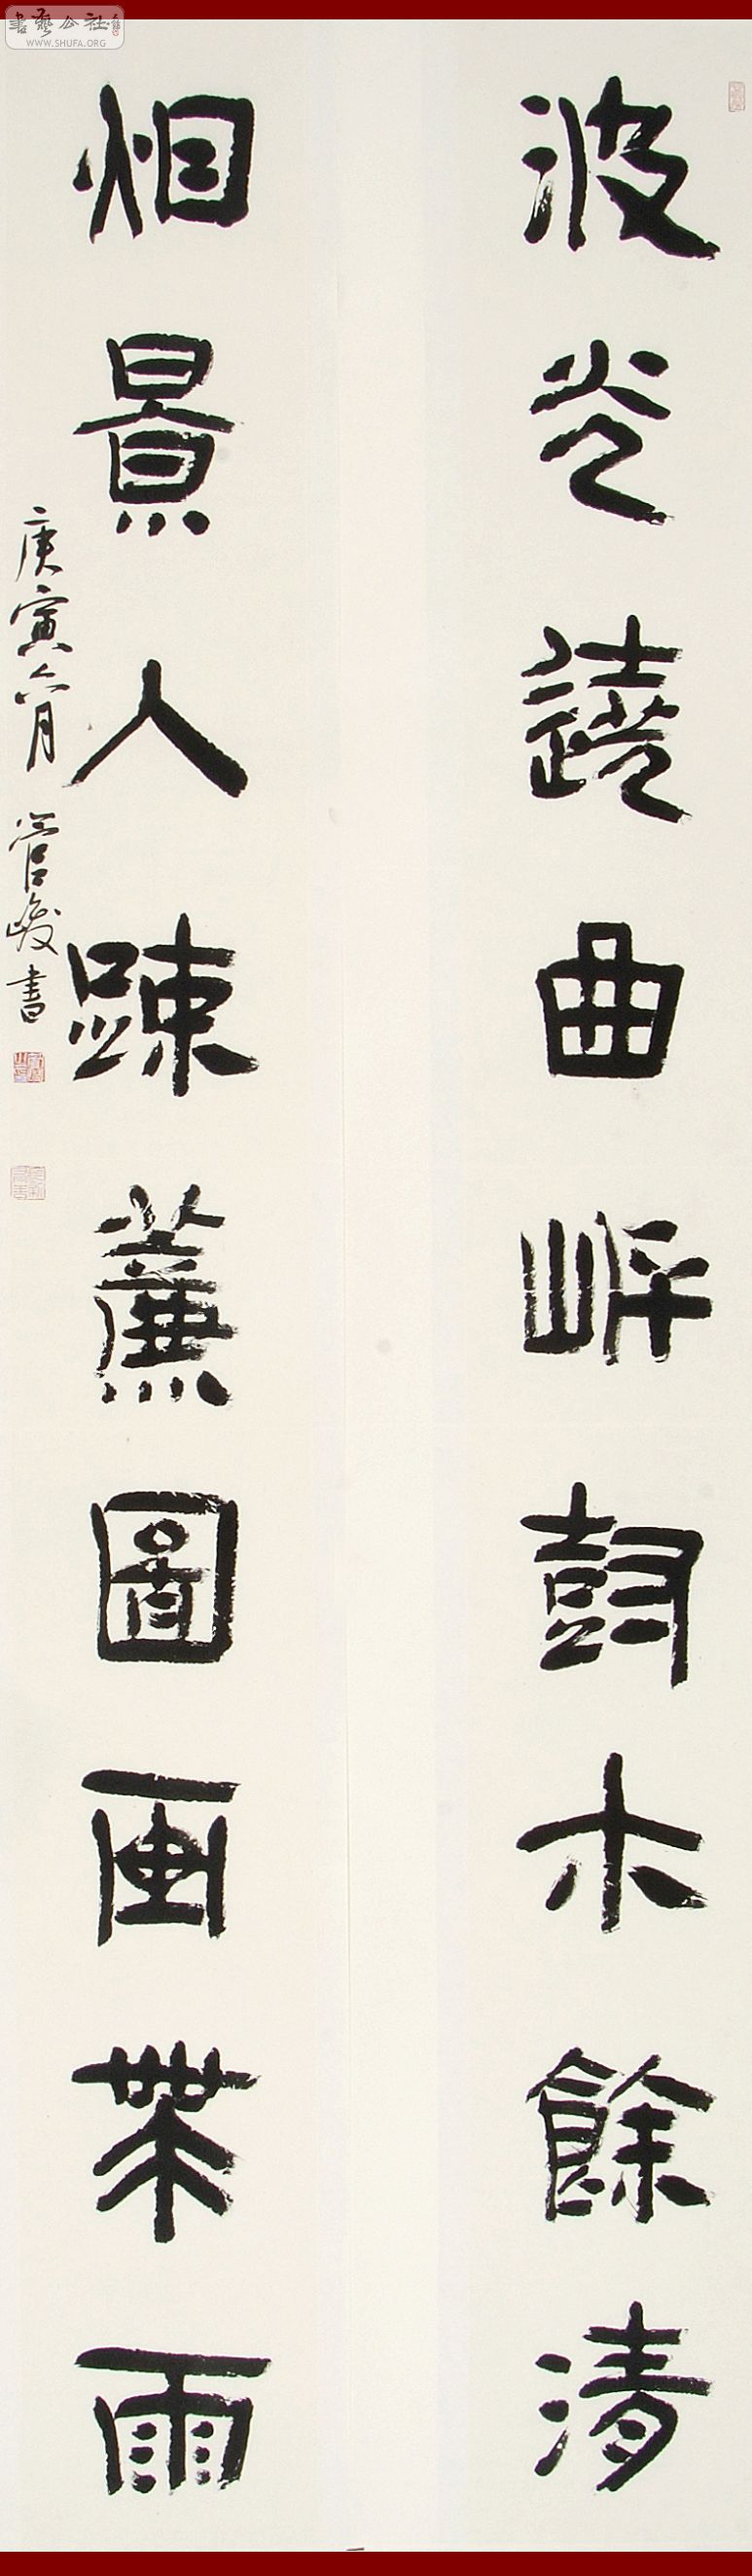 書藝公社
WWW.SHUFA.ORG
波光遶曲岸鼓木餘清
烟景人疎薰圖画帶雨
庚寅六月管峻書